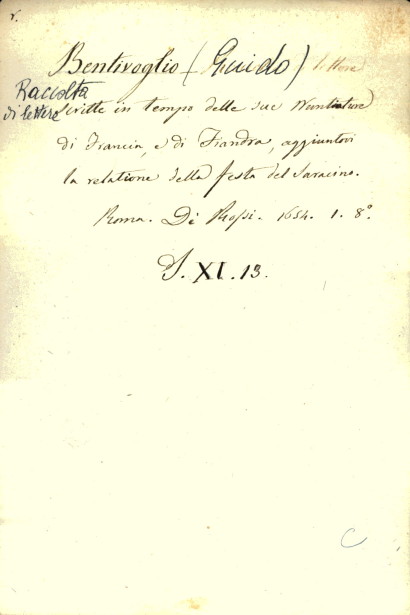 r.
Bentivoglio (Guido) lettere
Raccolta
di lettere
scritte in tempo delle sue Nuntiature
di Francia, e di Fiandra, aggiuntovi
la relatione della festa del Saracino.
Roma. De Rossi. 1654. 1. 8.º
S. XI. 13.
C